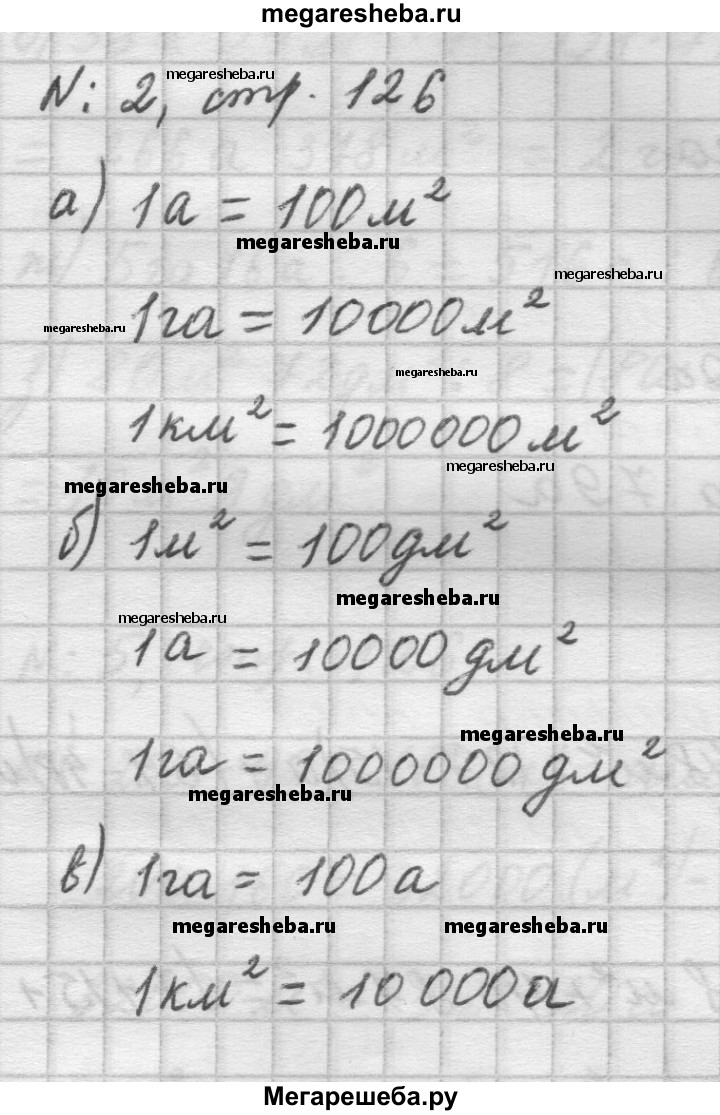 megaresheba.ru
megaresheba.ru
N: 2, стр. 126
а) 1а = 100м²
megaresheba.ru
megaresheba.ru
1га = 10000м²
megaresheba.ru
megaresheba.ru
1км² = 1000000м²
megaresheba.ru
megaresheba.ru
б) 1м² = 100дм²
megaresheba.ru
megaresheba.ru
1а = 10000дм²
megaresheba.ru
1га = 1000000дм²
megaresheba.ru
в) 1га = 100а
megaresheba.ru megaresheba.ru
1км² = 10 000а
Мегарешеба.ру